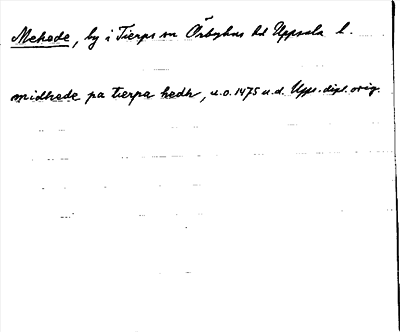 Mehede, by i Tierps sn Örbyhus hd Uppsala l.
midhede pa tierpa hedh, u.o. 1475 u.d. Uppl. dipl. orig.